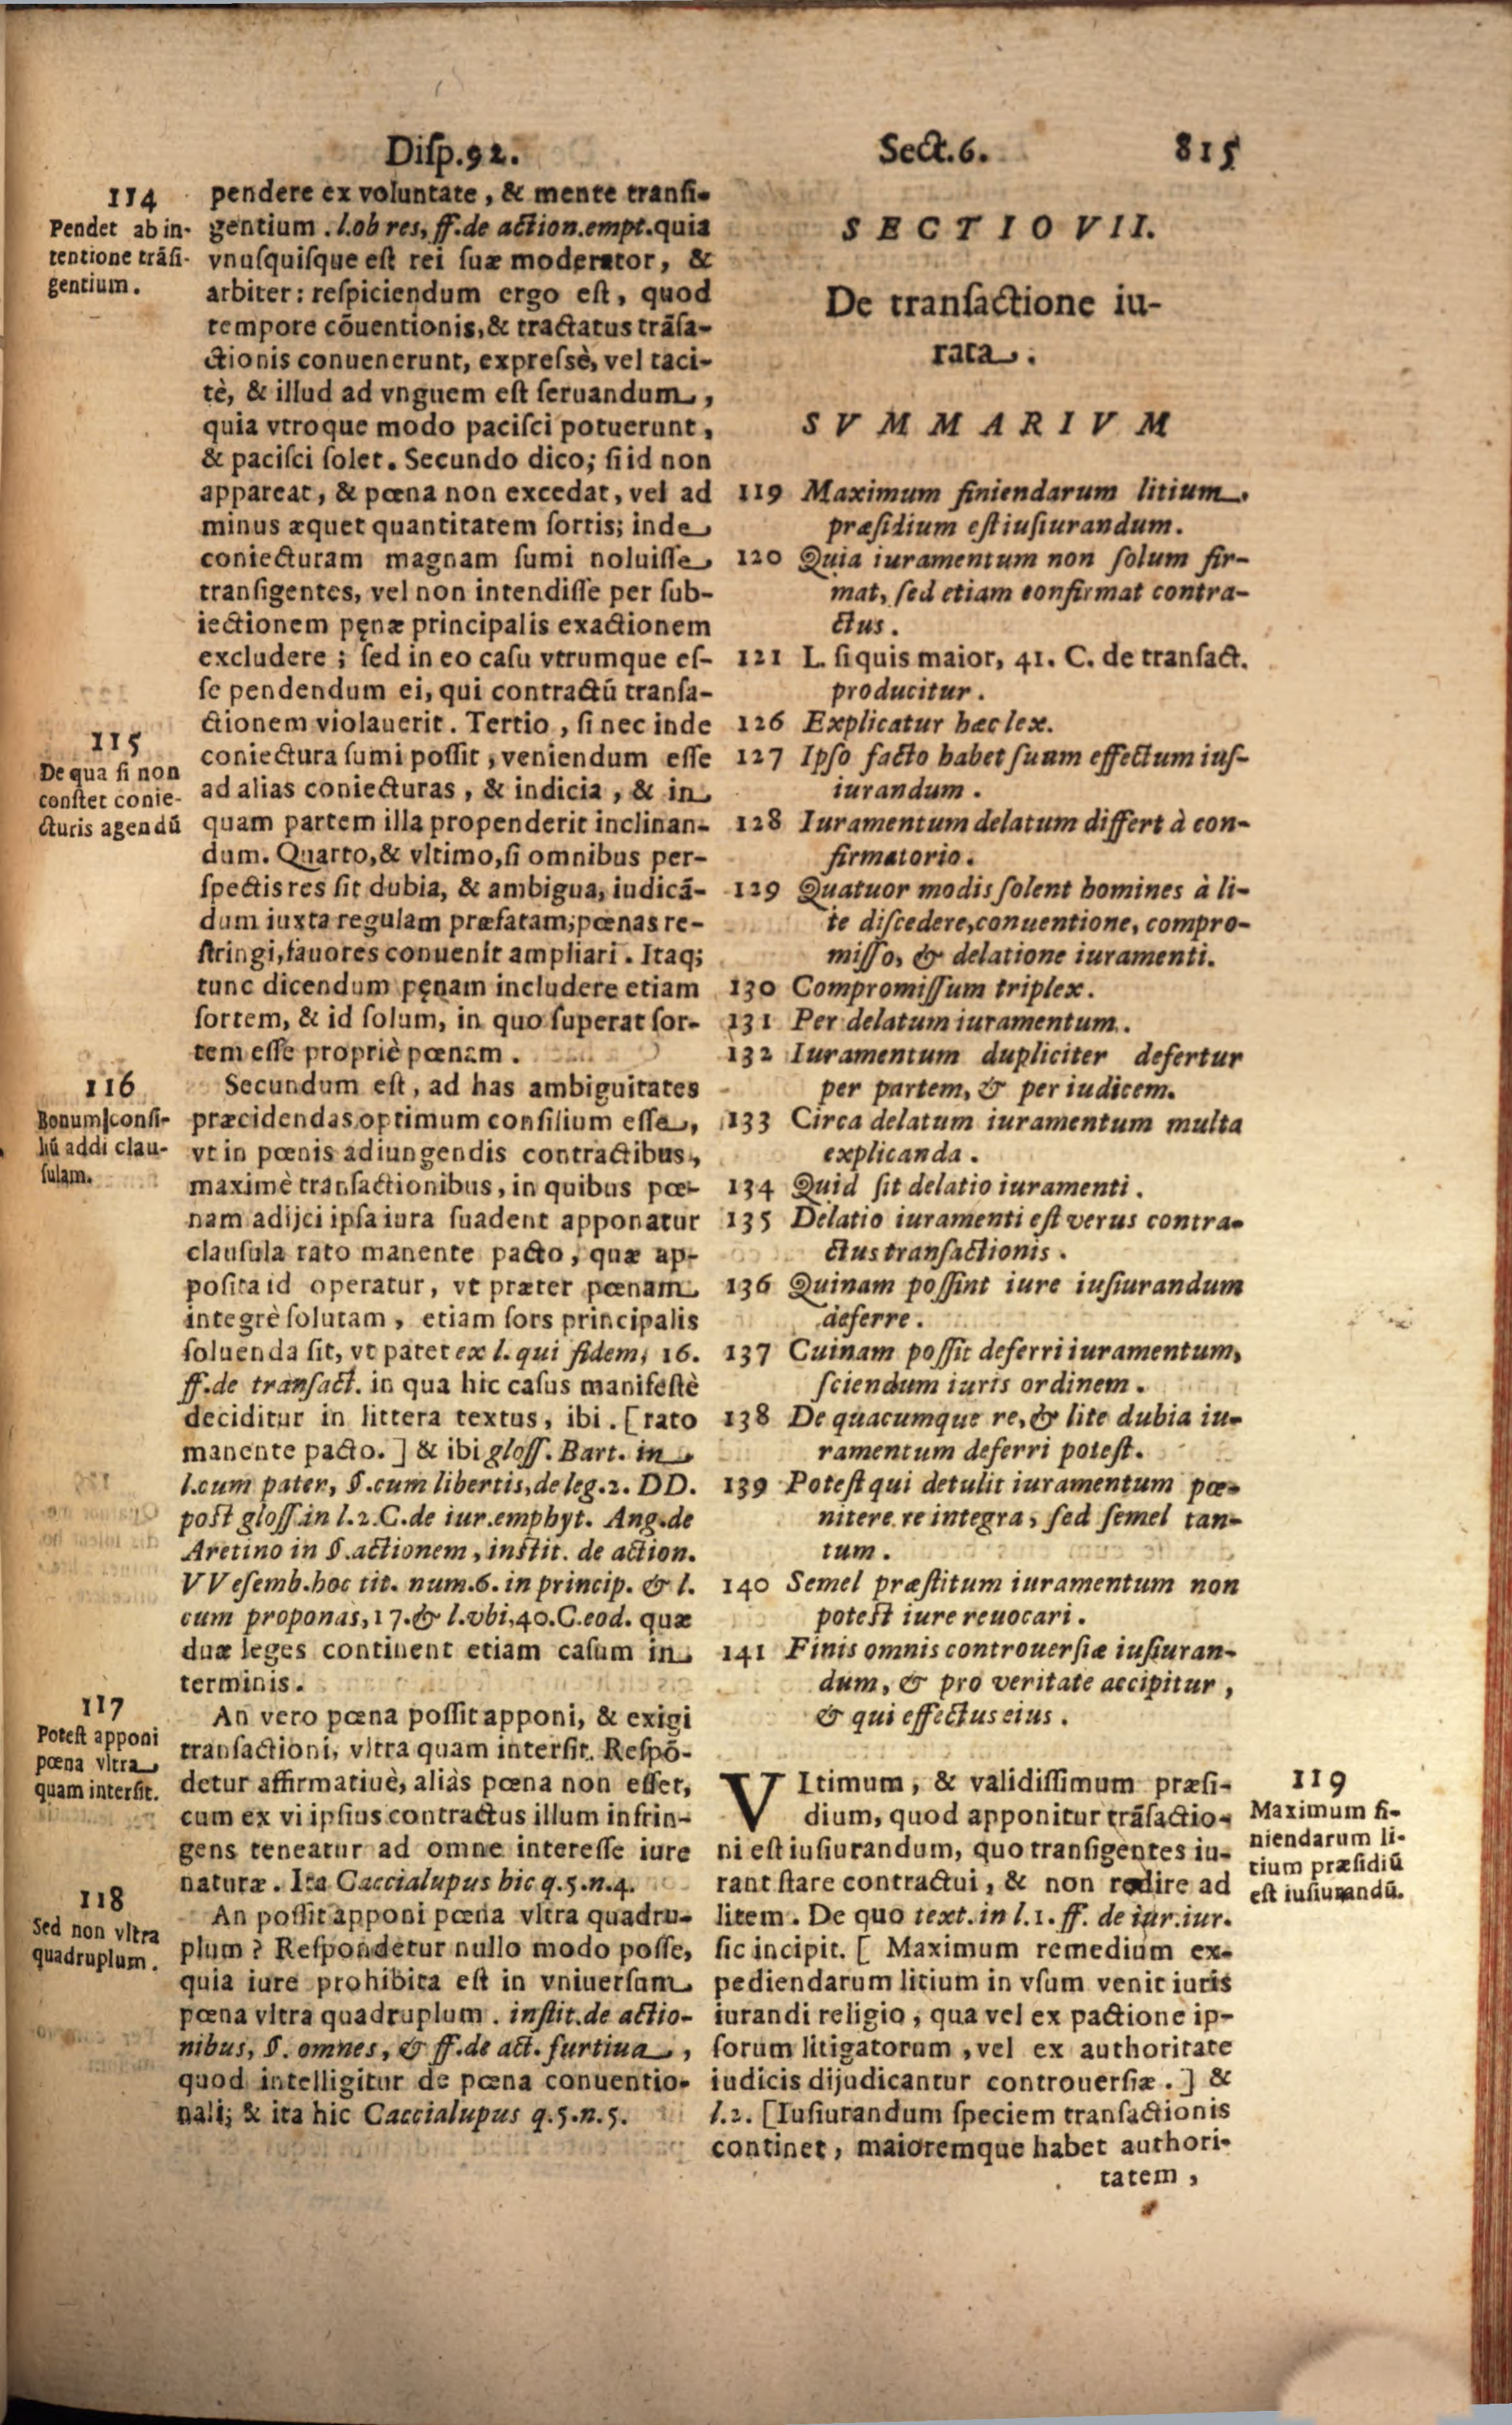 Disp.92.
Sect.6.
815
114
Pendet ab in-
tentione trãsi-
gentium.
pendere ex voluntate, & mente transi-
gentium. l.ob res, ff.de action.empt. quia
vnusquisque est rei suæ moderator, &
arbiter: respiciendum ergo est, quod
tempore cõuentionis, & tractatus trãsa-
ctionis conuenerunt, expressè, vel taci-
tè, & illud ad vnguem est seruandum,
quia vtroque modo pacisci potuerunt,
& pacisci solet. Secundo dico; si id non
appareat, & pœna non excedat, vel ad
minus æquet quantitatem sortis; inde
coniecturam magnam sumi noluisse
transigentes, vel non intendisse per sub-
iectionem pęnæ principalis exactionem
excludere; sed in eo casu vtrumque es-
se pendendum ei, qui contractũ transa-
ctionem violauerit. Tertio, si nec inde
115
De qua si non
constet conie-
cturis agendũ
coniectura sumi possit, veniendum esse
ad alias coniecturas, & indicia, & in
quam partem illa propenderit inclinan-
dum. Quarto, & vltimo, si omnibus per-
spectis res sit dubia, & ambigua, iudicã-
dum iuxta regulam præfatam; pœnas re-
stringi, fauores conuenit ampliari. Itaq;
tunc dicendum pęnam includere etiam
sortem, & id solum, in quo superat sor-
tem esse propriè pœnam.
116
Bonum consi-
liũ addi clau-
sulam.
Secundum est, ad has ambiguitates
præcidendas optimum consilium esse,
vt in pœnis adiungendis contractibus,
maximè transactionibus, in quibus pœ-
nam adijci ipsa iura suadent apponatur
clausula rato manente pacto, quæ ap-
posita id operatur, vt præter pœnam
integrè solutam, etiam sors principalis
soluenda sit, vt patet ex l. qui fidem, 16.
ff.de transact. in qua hic casus manifestè
deciditur in littera textus, ibi. [rato
manente pacto.] & ibi gloss. Bart. in
l.cum pater, §.cum libertis, de leg.2. DD.
post gloss.in l.2.C.de iur.emphyt. Ang.de
Aretino in §.actionem, instit. de action.
VVesemb.hoc tit. num.6. in princip. & l.
cum proponas, 17.& l.vbi, 40.C.eod. quæ
duæ leges continent etiam casum in
terminis.
117
Potest apponi
pœna vltra
quam intersit.
An vero pœna possit apponi, & exigi
transactioni, vltra quam intersit. Respõ-
detur affirmatiuè, aliàs pœna non esset,
cum ex vi ipsius contractus illum infrin-
gens teneatur ad omne interesse iure
naturæ. Ita Caccialupus hic q.5.n.4.
118
Sed non vltra
quadruplum.
An possit apponi pœna vltra quadru-
plum? Respondetur nullo modo posse,
quia iure prohibita est in vniuersum
pœna vltra quadruplum. instit.de actio-
nibus, §. omnes, & ff.de act. furtiua,
quod intelligitur de pœna conuentio-
nali; & ita hic Caccialupus q.5.n.5.
SECTIO VII.
De transactione iu-
rata.
SVMMARIVM
119 Maximum finiendarum litium
præsidium est iusiurandum.
120 Quia iuramentum non solum fir-
mat, sed etiam confirmat contra-
ctus.
121 L. si quis maior, 41. C. de transact.
producitur.
126 Explicatur hæc lex.
127 Ipso facto habet suum effectum ius-
iurandum.
128 Iuramentum delatum differt à con-
firmatorio.
129 Quatuor modis solent homines à li-
te discedere, conuentione, compro-
misso, & delatione iuramenti.
130 Compromissum triplex.
131 Per delatum iuramentum.
132 Iuramentum dupliciter defertur
per partem, & per iudicem.
133 Circa delatum iuramentum multa
explicanda.
134 Quid sit delatio iuramenti.
135 Delatio iuramenti est verus contra-
ctus transactionis.
136 Quinam possint iure iusiurandum
deferre.
137 Cuinam possit deferri iuramentum,
sciendum iuris ordinem.
138 De quacumque re, & lite dubia iu-
ramentum deferri potest.
139 Potest qui detulit iuramentum pœ-
nitere re integra, sed semel tan-
tum.
140 Semel præstitum iuramentum non
potest iure reuocari.
141 Finis omnis controuersiæ iusiuran-
dum, & pro veritate accipitur,
& qui effectus eius.
VLtimum, & validissimum præsi-
dium, quod apponitur trãsactio-
ni est iusiurandum, quo transigentes iu-
rant stare contractui, & non redire ad
litem. De quo text. in l.1. ff. de iur.iur.
sic incipit. [Maximum remedium ex-
pediendarum litium in vsum venit iuris
iurandi religio, qua vel ex pactione ip-
sorum litigatorum, vel ex authoritate
iudicis dijudicantur controuersiæ.] &
l.2. [Iusiurandum speciem transactionis
continet, maioremque habet authori-
tatem,
119
Maximum fi-
niendarum li-
tium præsidiũ
est iusiurandũ.